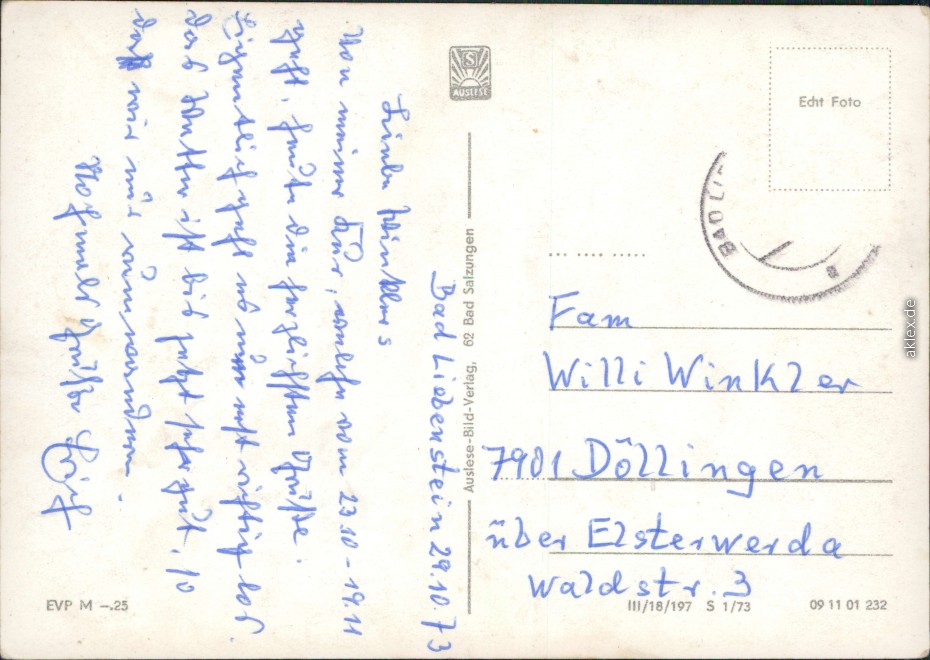 Bad Liebenstein 29.10.73
Liebe Winklers
Von meiner Kur, welche vom 23.10 - 19.11
geht, heute die herzlichsten Grüße.
Eigentlich geht es nun erst richtig los.
das Wetter ist bis jetzt sehr gut, so
daß wir nur rumwandern.
Nochmals Grüße Erich
S
AUSLESE
Auslese-Bild-Verlag, 62 Bad Salzungen
Echt Foto
BAD LI
Fam
Willi Winkler
7901 Döllingen
über Elsterwerda
Waldstr. 3
EVP M -.25
III/18/197 S 1/73
09 11 01 232
aklex.de